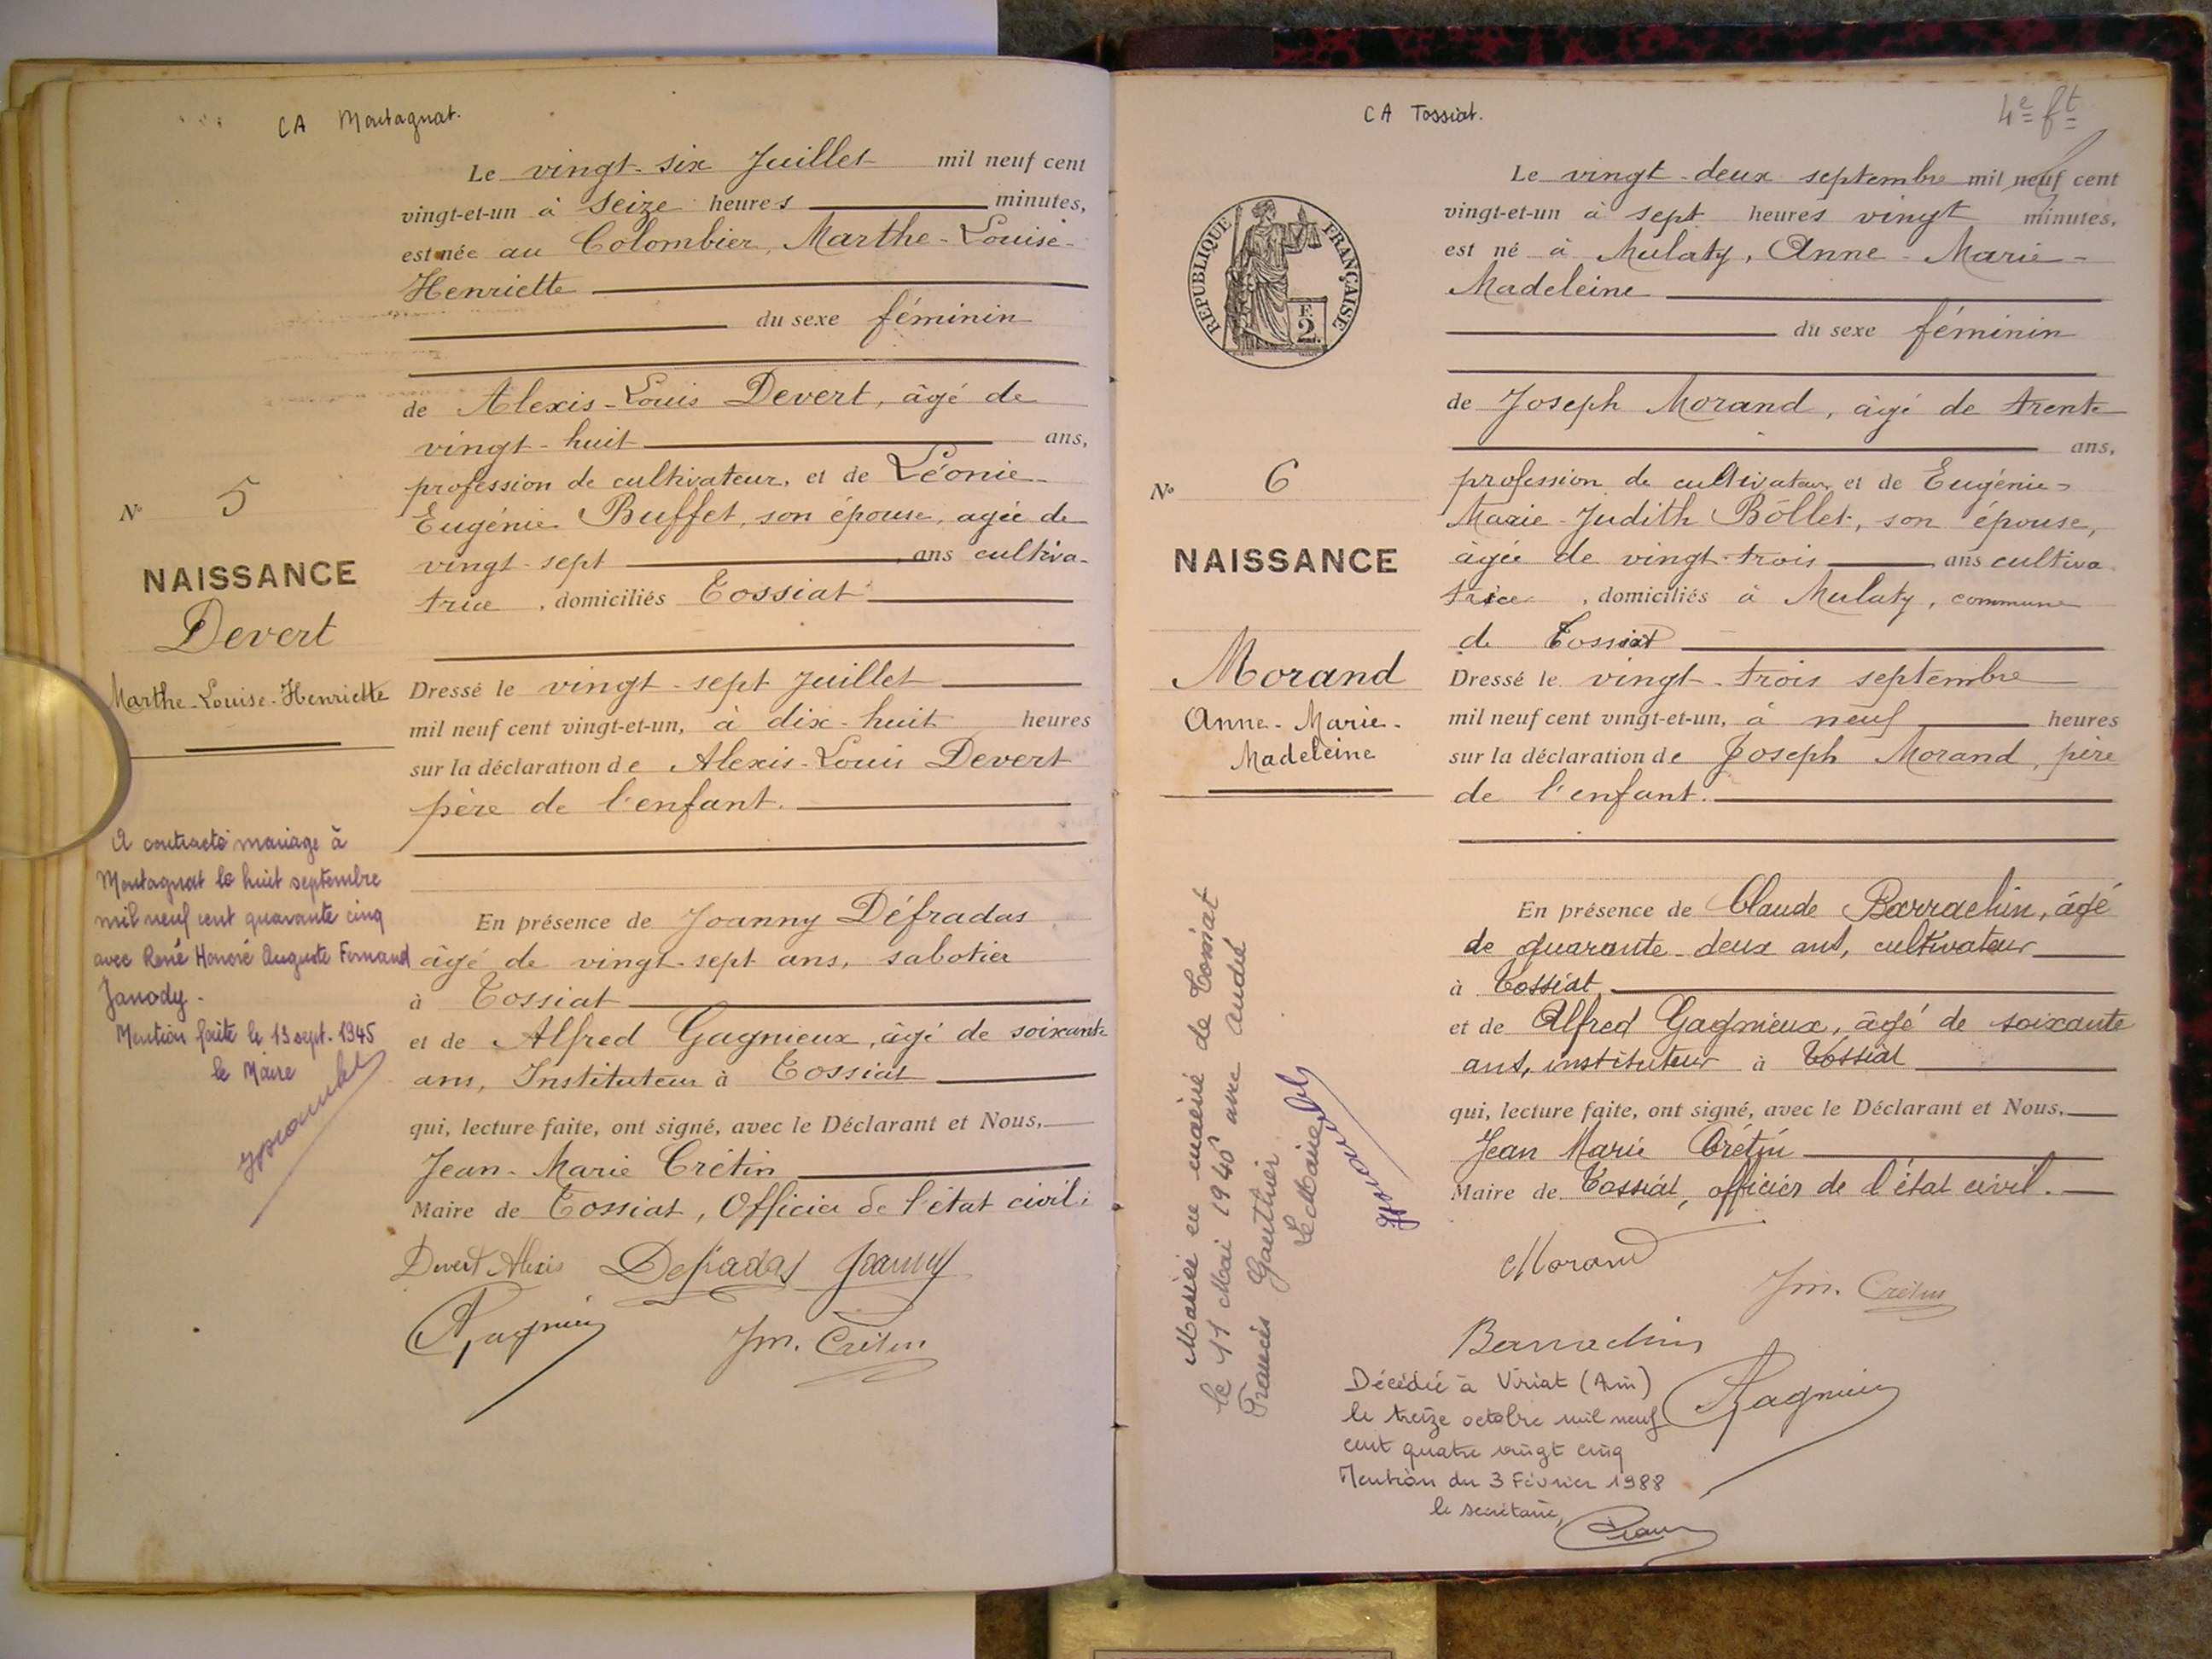 CA Montagnat.
Le vingt-six Juillet mil neuf cent
vingt-et-un à seize heures minutes,
est née au Colombier, Marthe-Louise-
Henriette
du sexe féminin
de Alexis-Louis Devert, âgé de
vingt-huit ans,
profession de cultivateur, et de Léonie-
Eugénie Buffet, son épouse, agée de
vingt-sept ans cultiva-
trice, domiciliés Tossiat
Nº 5
NAISSANCE
Devert
Marthe-Louise-Henriette
Dressé le vingt-sept Juillet
mil neuf cent vingt-et-un, à dix-huit heures
sur la déclaration de Alexis-Louis Devert
père de l'enfant.
A contracté mariage à
Montagnat le huit septembre
mil neuf cent quarante cinq
avec René Honoré Auguste Fernand
Janody.
Mention faite le 13 sept. 1945
le Maire
En présence de Joanny Défradas
âgé de vingt-sept ans, sabotier
à Tossiat
et de Alfred Gagnieux, âgé de soixante
ans, Instituteur à Tossiat
qui, lecture faite, ont signé, avec le Déclarant et Nous,
Jean-Marie Crétin
Maire de Tossiat, Officier de l'état civil.
Devert Alexis Defradas Joanny
AGagnieux Jm. Crétin
CA Tossiat.
4e ft
Le vingt-deux septembre mil neuf cent
vingt-et-un à sept heures vingt minutes,
est né à Mulaty, Anne-Marie-
Madeleine
du sexe féminin
REPUBLIQUE FRANÇAISE
F. 2.
de Joseph Morand, âgé de trente
ans,
profession de cultivateur, et de Eugénie-
Marie-Judith Böllet, son épouse,
âgée de vingt-trois ans cultiva
trice, domiciliés à Mulaty, commune
de Tossiat
Nº 6
NAISSANCE
Morand
Anne-Marie-
Madeleine
Dressé le vingt-trois septembre
mil neuf cent vingt-et-un, à neuf heures
sur la déclaration de Joseph Morand, père
de l'enfant.
Mariée en mairie de Tossiat
le 11 Mai 1940 avec André
Francis Gauthier
Le Maire
En présence de Claude Barrachin, âgé
de quarante-deux ans, cultivateur
à Tossiat
et de Alfred Gagnieux, âgé de soixante
ans, instituteur à Tossiat
qui, lecture faite, ont signé, avec le Déclarant et Nous,
Jean Marie Crétin
Maire de Tossiat, officier de l'état civil.
Morand
Jm. Crétin
Barrachin
AGagnieux
Décédée à Viriat (Ain)
le treize octobre mil neuf
cent quatre vingt cinq
Mention du 3 Février 1988
le secrétaire,